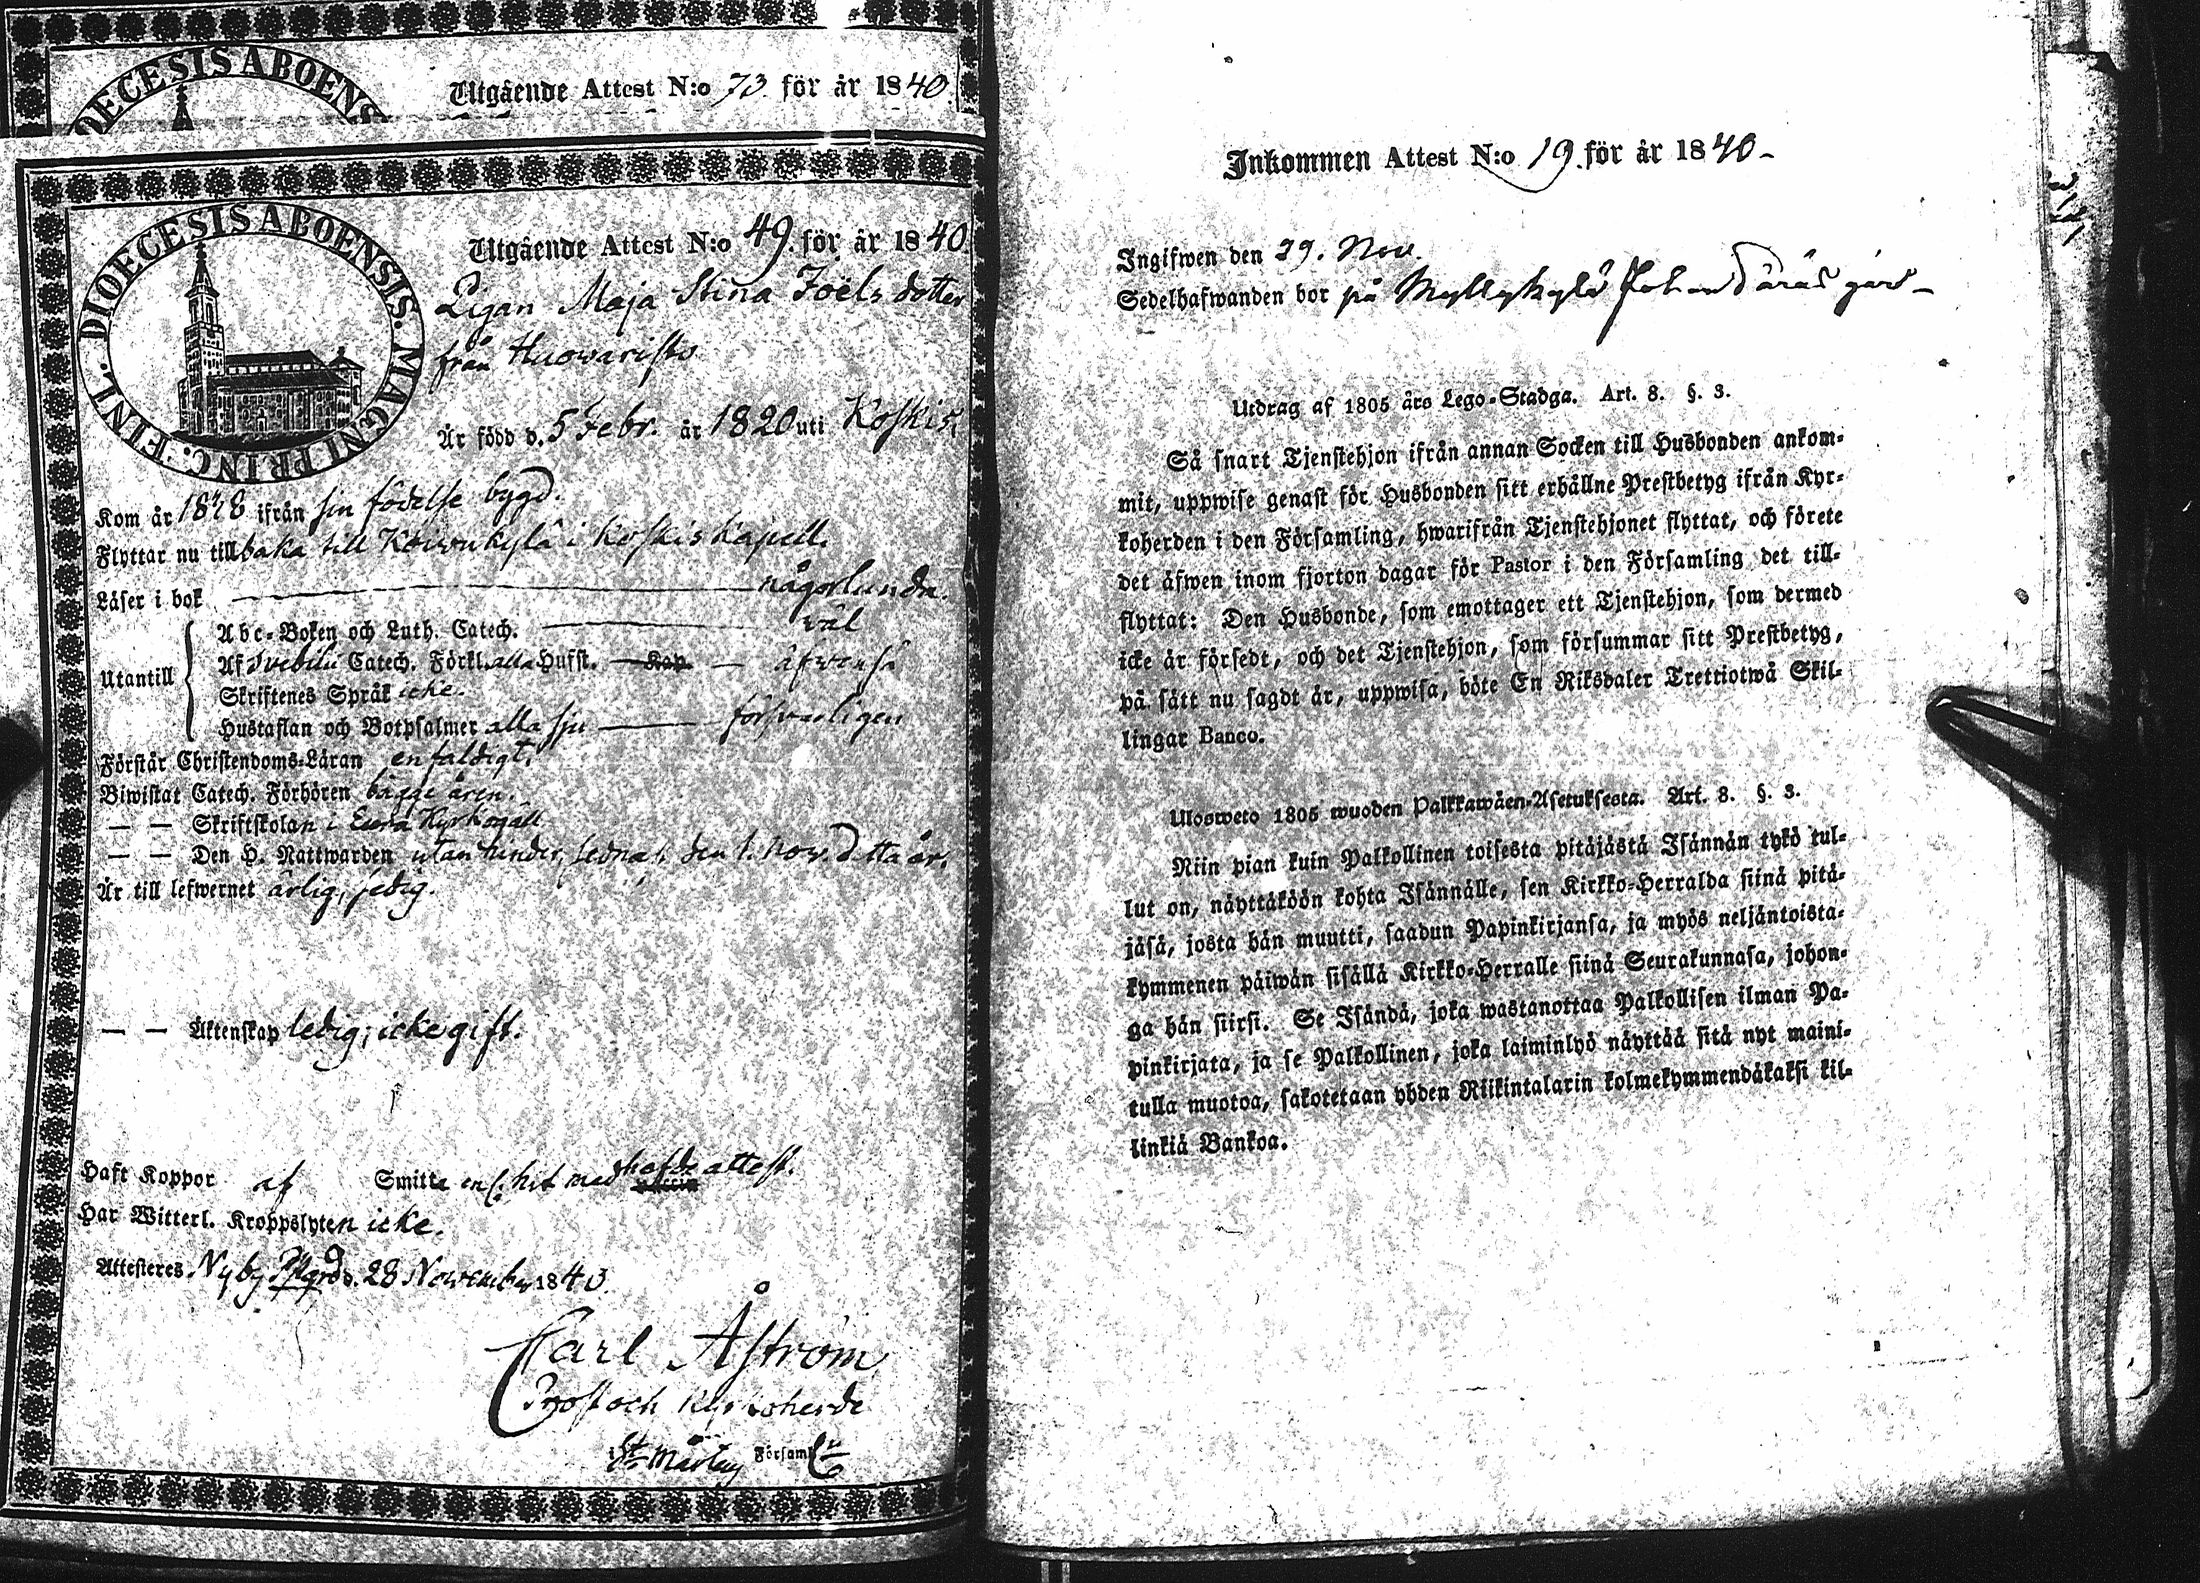 DIOECESIS ABOENS
Utgående Attest N:o 73 för år 1840.
DIOECESIS ABOENSIS. MAGNI PRINC. FINL.
Utgående Attest N:o 49. för år 1840
Pigan Maja Stina Joëls dotter
från Huowaristo
Är född d. 5 Febr. år 1820 uti Koskis,
Kom år 1828 ifrån sin födelse bygd.
Flyttar nu tillbaka till Koiwukylä i Koskis Kapell.
Läser i bok någorlunda.
Abc-Boken och Luth. Catech. wäl
Utantill
Af Svebilii Catech. Förkl. alla Hufst. Kap. äfwenså
Skriftenes Språk icke.
Hustaflan och Botpsalmer alla sju försvarligen
Förstår Christendoms-Läran enfaldigt.
Biwistat Catech. Förhören bägge åren.
— — Skriftskolan i Eura Kyrkogäll
— — Den H. Nattwarden utan hinder, sednast den 1. Nov. detta år.
Är till lefwernet ärlig, sedig.
— — Äktenskap ledig; icke gift.
Haft Koppor af Smitta enl. hit medhafde attest.
Har Witterl. Kroppslyten icke.
Attesteras Nyby Pstgrd d. 28 November 1840.
Carl Åström
Prost och Kyrkoherde
i St. Mårtens Församl.
Inkommen Attest N:o 19. för år 1840-
Ingifwen den 29. Nov.
Sedelhafwanden bor på Myllykylä Johan gård -
Utdrag af 1805 års Lego-Stadga. Art. 8. §. 3.
Så snart Tjenstehjon ifrån annan Socken till Husbonden ankom-
mit, uppwise genast för Husbonden sitt erhållne Prestbetyg ifrån Kyr-
koherden i den Församling, hwarifrån Tjenstehjonet flyttat, och förete
det äfwen inom fjorton dagar för Pastor i den Församling det till-
flyttat: Den Husbonde, som emottager ett Tjenstehjon, som dermed
icke är försedt, och det Tjenstehjon, som försummar sitt Prestbetyg,
på sätt nu sagdt är, uppwisa, böte En Riksdaler Trettiotwå Skil-
lingar Banco.
Ulosweto 1805 wuoden Palkkawäen-Asetuksesta. Art. 8. §. 3.
Niin pian kuin Palkollinen toisesta pitäjästä Isännän tykö tul-
lut on, näyttäköön kohta Isännälle, sen Kirkko-Herralda siinä pitä-
jäsä, josta hän muutti, saadun Papinkirjansa, ja myös neljäntoista-
kymmenen päiwän sisällä Kirkko-Herralle siinä Seurakunnasa, johon-
ga hän siirsi. Se Isändä, joka wastanottaa Palkollisen ilman Pa-
pinkirjata, ja se Palkollinen, joka laiminlyö näyttää sitä nyt maini-
tulla muotoa, sakotetaan yhden Riikintalarin kolmekymmendäkaksi kil-
linkiä Bankoa.